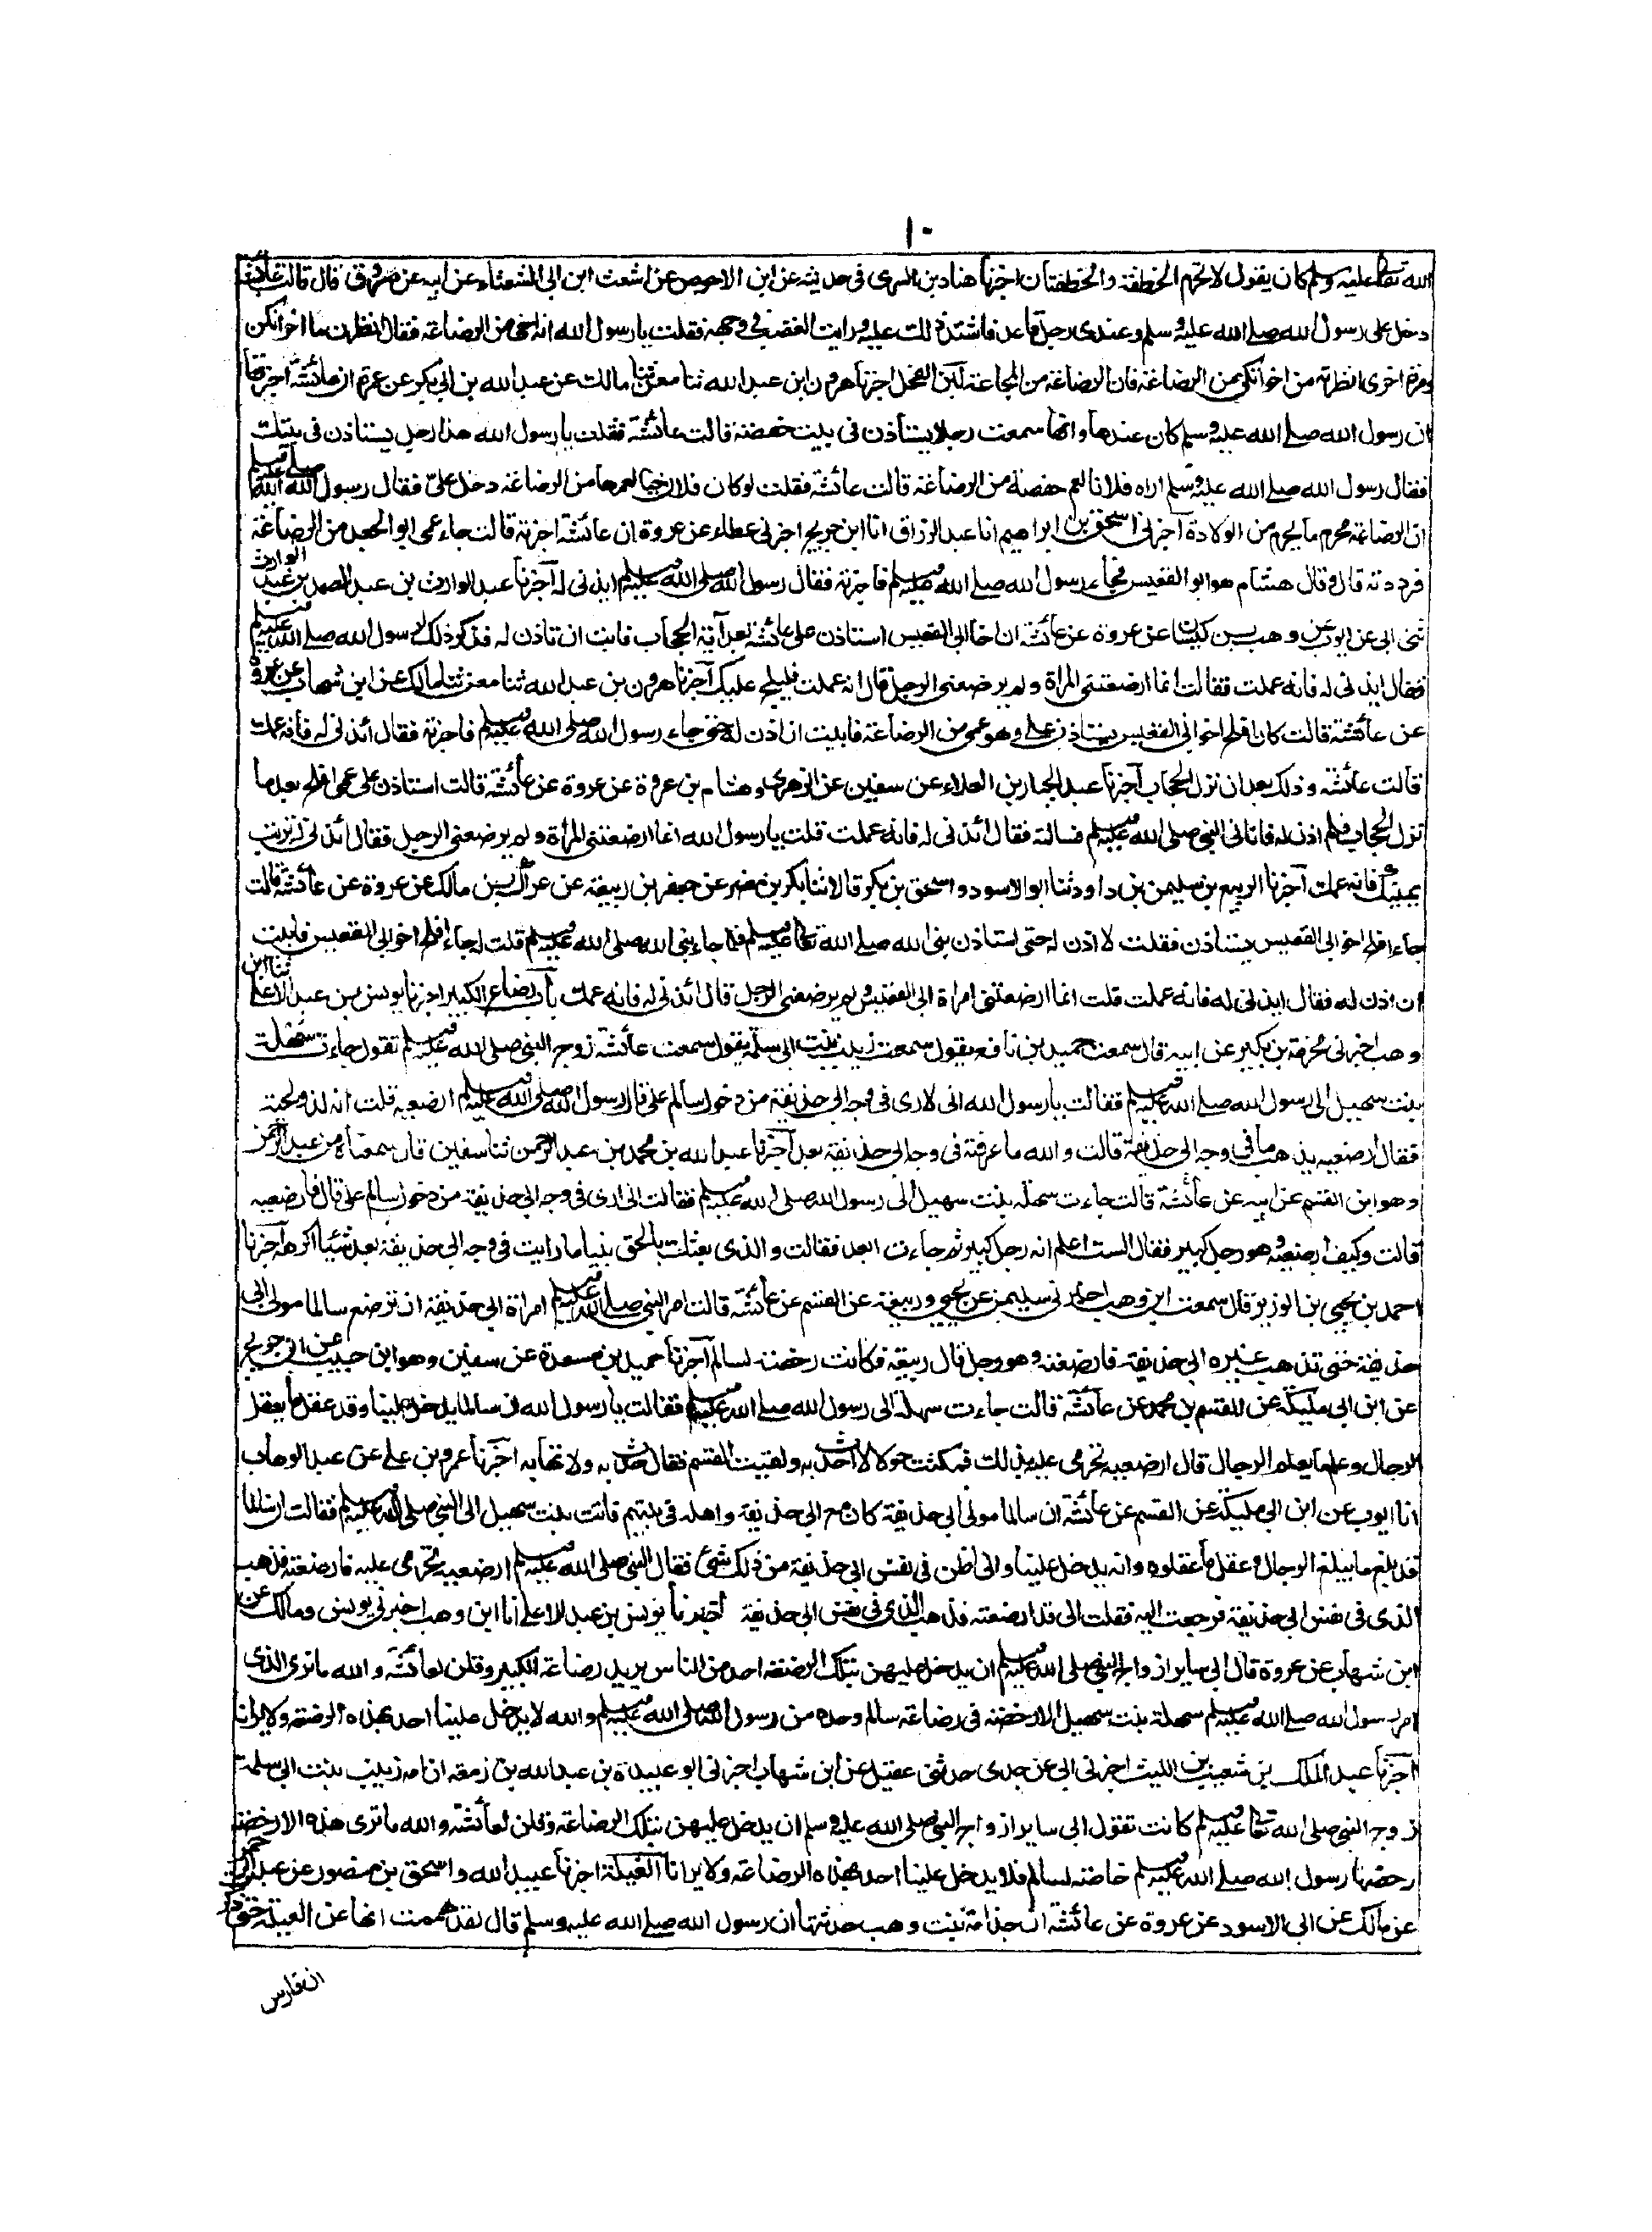 ١٠
الله تعالى عليه وسلم كان يقول لا تحرم الخطفة والخطفتان اخبرنا هناد بن السرى فى حديثه عن ابن الاحوص عن اشعث ابن ابى الشعثاء عن ابيه عن مسروق قال قالت عائشة
دخل على رسول الله صلى الله عليه وسلم وعندى رجل قاعد فاشتد ذلك عليه ورايت الغضب فى وجهه فقلت يا رسول الله انه اخى من الرضاعة فقال انظرن ما اخوانكن
ومرة اخرى انظرن من اخوانكن من الرضاعة فان الرضاعة من المجاعة لبن الفحل اخبرنا هرون ابن عبد الله ثنا معن ثنا مالك عن عبد الله بن ابى بكر عن عمرة ان عائشة اخبرتها
ان رسول الله صلى الله عليه وسلم كان عندها وانها سمعت رجلا يستأذن فى بيت حفصة قالت عائشة فقلت يا رسول الله هذا رجل يستاذن فى بيتك
فقال رسول الله صلى الله عليه وسلم اراه فلانا لعم حفصة من الرضاعة قالت عائشة فقلت لو كان فلان حيا لعمها من الرضاعة دخل علىّ فقال رسول الله صلى الله عليه وسلم
ان الرضاعة محرم ما يحرم من الولادة اخبرنى اسحق بن ابراهيم انا عبد الرزاق انا ابن جريج اخبرنى عطاء عن عروة ان عائشة اخبرته قالت جاء عمى ابو الجعد من الرضاعة
فرددته قال وقال هشام هو ابو القعيس فجاء رسول الله صلى الله عليه وسلم فاخبرته فقال رسول الله صلى الله عليه وسلم ايذنى له اخبرنا عبد الوارث بن عبد الصمد بن عبد الوارث
ثنى ابى عن ايوب عن وهب بن كيسان عن عروة عن عائشة ان اخا ابى القعيس استاذن على عائشة بعد آية الحجاب فابت ان تاذن له فذكر ذلك لرسول الله صلى الله عليه وسلم
فقال ايذنى له فانه عمك فقالت انما ارضعتنى المراة ولم يرضعنى الرجل قال انه عمك فليلج عليك اخبرنا هرون بن عبد الله ثنا معن ثنا مالك عن ابن شهاب عن عروة
عن عائشة قالت كان افلح اخو ابى القعيس يستاذن على وهو عمى من الرضاعة فابيت ان اذن له حتى جاء رسول الله صلى الله عليه وسلم فاخبرته فقال ائذنى له فانه عمك
قالت عائشة وذلك بعد ان نزل الحجاب اخبرنا عبد الجبار بن العلاء عن سفين عن الزهرى وهشام بن عروة عن عروة عن عائشة قالت استاذن على عمى افلح بعد ما
نزل الحجاب فلم اذن له فاتانى النبى صلى الله عليه وسلم فسالته فقال ائذنى له فانه عمك قلت يا رسول الله انما ارضعتنى المرأة ولم يرضعنى الرجل فقال ائذنى له تربت
يمينك فانه عمك اخبرنا الربيع بن سليمن بن داود ثنا ابو الاسود واسحق بن بكر قالا ثنا بكر بن مضر عن جعفر ابن ربيعة عن عراك بن مالك عن عروة عن عائشة قالت
جاء افلح اخو ابى القعيس يستاذن فقلت لا اذن له حتى استاذن نبى الله صلى الله تعالى عليه وسلم فلما جاء نبى الله صلى الله عليه وسلم قلت له جاء افلح اخو ابى القعيس فابيت
ان اذن له فقال ايذنى له فانه عمك قلت انما ارضعتنى امراة ابى القعيس ولم يرضعنى الرجل قال ائذنى له فانه عمك باب رضاع الكبير اخبرنا يونس بن عبد الاعلى ثنا ابن
وهب اخبرنى مخرمة بن بكير عن ابيه قال سمعت حميد بن نافع يقول سمعت زينب بنت ابى سلمة يقول سمعت عائشة زوج النبى صلى الله عليه وسلم تقول جاءت سهلة
بنت سهيل الى رسول الله صلى الله عليه وسلم فقالت يا رسول الله انى لارى فى وجه ابى حذيفة من دخول سالم على قال رسول الله صلى الله عليه وسلم ارضعيه قلت انه لذو لحية
فقال ارضعيه يذهب ما فى وجه ابى حذيفة قالت والله ما عرفته فى وجه ابى حذيفة بعد اخبرنا عبد الله بن محمد بن عبد الرحمن ثنا سفين قال سمعناه من عبد الرحمن
وهو ابن القسم عن ابيه عن عائشة قالت جاءت سهلة بنت سهيل الى رسول الله صلى الله عليه وسلم فقالت انى ارى فى وجه ابى حذيفة من دخول سالم على قال فارضعيه
قالت وكيف ارضعه وهو رجل كبير فقال الست اعلم انه رجل كبير ثم جاءت ابعد فقالت والذى بعثك بالحق نبيا ما رايت فى وجه ابى حذيفة بعد شيئا اكره اخبرنا
احمد بن يحيى بن الوزير قال سمعت ابن وهب اخبرنى سليمن عن يحيى وربيعة عن القسم عن عائشة قالت امر النبى صلى الله عليه وسلم امراة ابى حذيفة ان ترضع سالما مولى ابى
حذيفة حتى تذهب غيرة ابى حذيفة فارضعته وهو رجل قال ربيعة فكانت رخصة لسالم اخبرنا حميد بن مسعدة عن سفين وهو ابن حبيب عن ابن جريج
عن ابن ابى مليكة عن القسم بن محمد عن عائشة قالت جاءت سهلة الى رسول الله صلى الله عليه وسلم فقالت يا رسول الله ان سالما يدخل علينا وقد عقل ما يعقل
الرجال وعلم ما يعلم الرجال قال ارضعيه تحرمى عليه بذلك فمكثت حولا لا احدث به ولقيت القسم فقال حدث به ولا تهابه اخبرنا عمرو بن على عن عبد الوهاب
انا ايوب عن ابن ابى مليكة عن القسم عن عائشة ان سالما مولى ابى حذيفة كان مع ابى حذيفة واهله فى بيتهم فاتت بنت سهيل الى النبى صلى الله عليه وسلم فقالت ان سالما
قد بلغ ما يبلغ الرجال وعقل ما عقلوه وانه يدخل علينا وانى اظن فى نفس ابى حذيفة من ذلك شئ فقال النبى صلى الله عليه وسلم ارضعيه تحرمى عليه فارضعته فذهب
الذى فى نفس ابى حذيفة فرجعت اليه فقلت انى قد ارضعته فذهب الذى فى نفس ابى حذيفة اخبرنا يونس بن عبد الاعلى انا ابن وهب اخبرنى يونس ومالك عن
ابن شهاب عن عروة قال ابى سائر ازواج النبى صلى الله عليه وسلم ان يدخل عليهن بتلك الرضعة احد من الناس يريد رضاعة الكبير وقلن لعائشة والله ما نرى الذى
امر رسول الله صلى الله عليه وسلم سهلة بنت سهيل الا رخصة فى رضاعة سالم وحده من رسول الله صلى الله عليه وسلم والله لا يدخل علينا احد بهذه الرضعة ولا يرانا
اخبرنا عبد الملك بن شعيب بن الليث اخبرنى ابى عن جدى حدثنى عقيل عن ابن شهاب اخبرنى ابو عبيدة بن عبد الله بن زمعة ان امه زينب بنت ابى سلمة
زوج النبى صلى الله تعالى عليه وسلم كانت تقول ابى سائر ازواج النبى صلى الله عليه وسلم ان يدخل عليهن بتلك الرضاعة وقلن لعائشة والله ما نرى هذه الا رخصة
رخصها رسول الله صلى الله عليه وسلم خاصة لسالم فلا يدخل علينا احد بهذه الرضاعة ولا يرانا الغيلة اخبرنا عبيد الله واسحق بن منصور عن عبد الرحمن
عن مالك عن ابى الاسود عن عروة عن عائشة ان جذامة بنت وهب حدثتها ان رسول الله صلى الله عليه وسلم قال لقد هممت انها عن الغيلة حتى ذكر
ان فارس